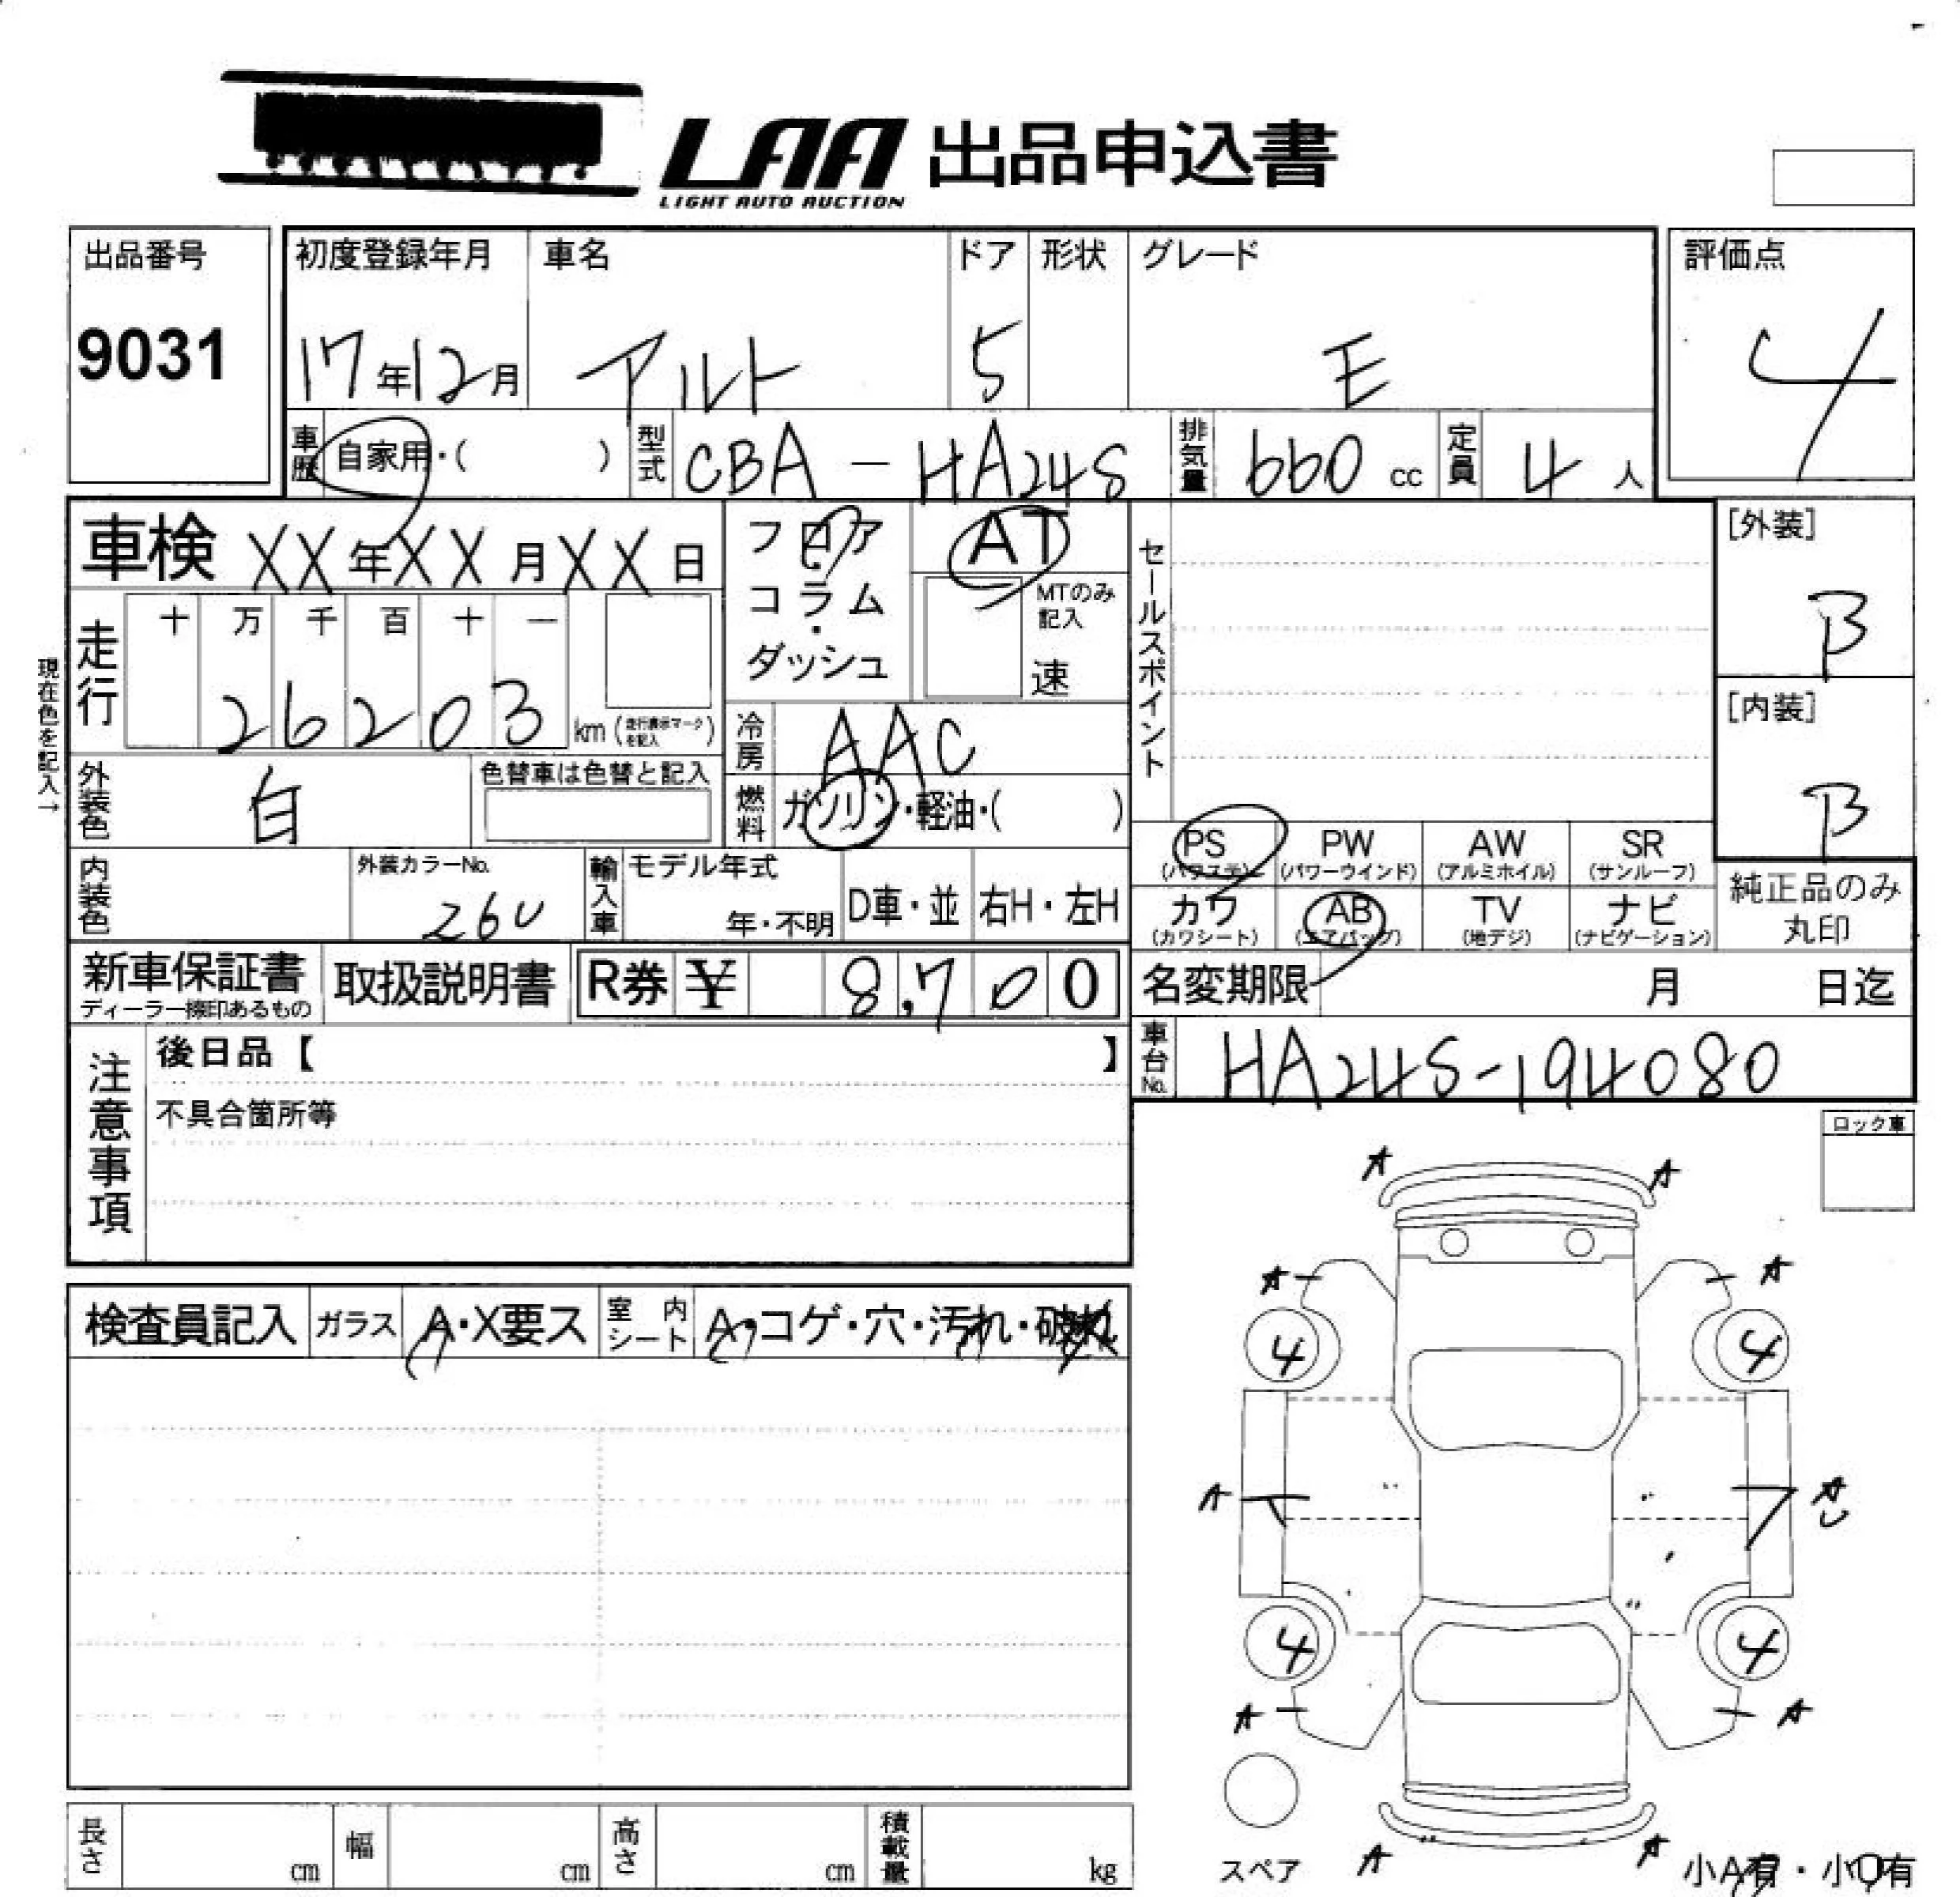 LAA 出品申込書
LIGHT AUTO AUCTION
出品番号 初度登録年月 車名 ドア 形状 グレード 評価点
9031 17年12月 アルト 5 E 4
車歴 自家用・( ) 型式 CBA-HA24S 排気量 660 cc 定員 4 人
車検 XX年XX月XX日 フロア・コラム・ダッシュ AT セールスポイント [外装]
MTのみ記入
速
B
現在色を記入→
走行 十 万 千 百 十 一
26203 km (走行表示マークを記入)
[内装]
冷房 AAC
B
外装色 白 色替車は色替と記入 燃料 ガソリン・軽油・( )
PS (パワステ) PW (パワーウインド) AW (アルミホイル) SR (サンルーフ)
内装色 外装カラーNo. 26U 輸入車 モデル年式 年・不明 D車・並 右H・左H
カワ (カワシート) AB (エアバッグ) TV (地デジ) ナビ (ナビゲーション) 純正品のみ丸印
新車保証書 ディーラー捺印あるもの 取扱説明書 R券 ¥ 8,700 名変期限 月 日迄
注意事項 後日品【 】 車台No. HA24S-194080
不具合箇所等
ロック車
A A
A A
検査員記入 ガラス A・X要ス 室内シート A・コゲ・穴・汚れ・破れ
4 4
A A
U
4 4
A A
長さ cm 幅 cm 高さ cm 積載量 kg
スペア A A 小A有・小U有